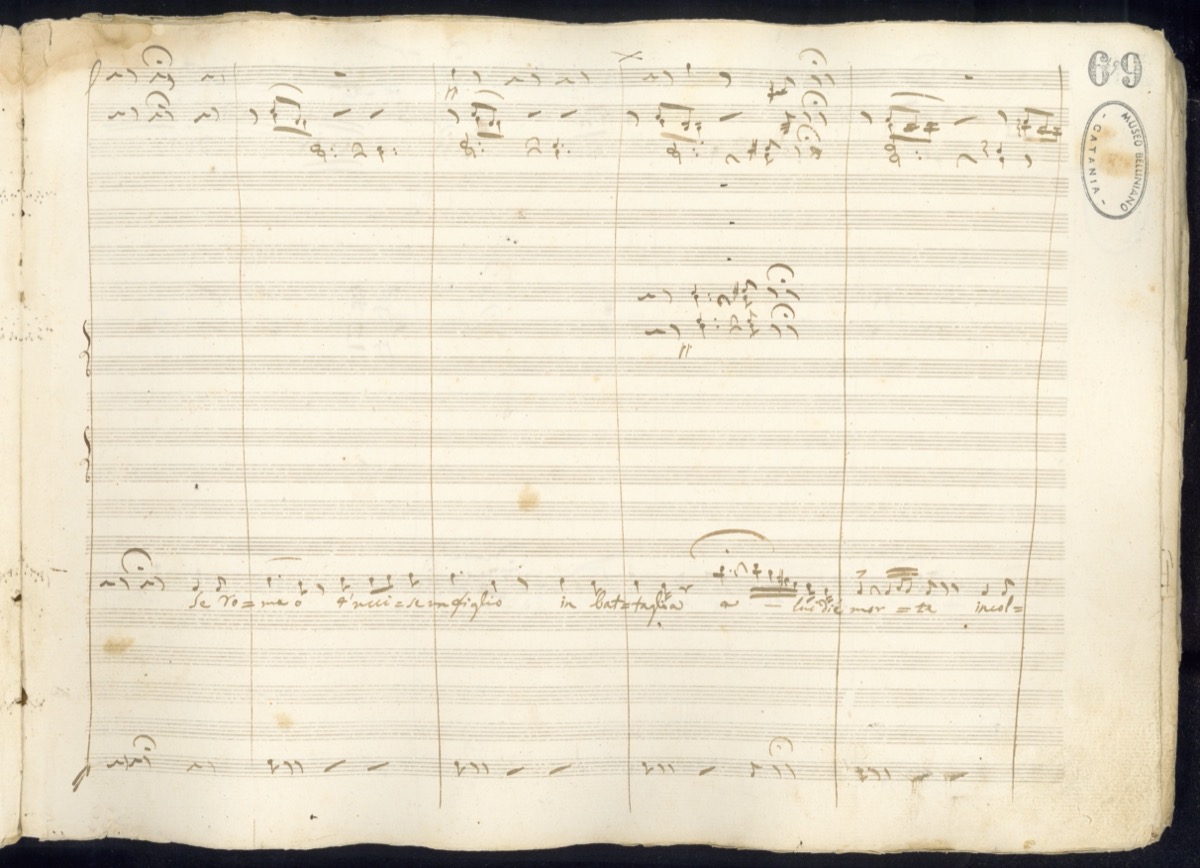 69
MUSEO BELLINIANO
- CATANIA -
pp
pp
Se Ro=meo t'ucci=se un figlio in bat=taglia a — lui diè mor=te incol=